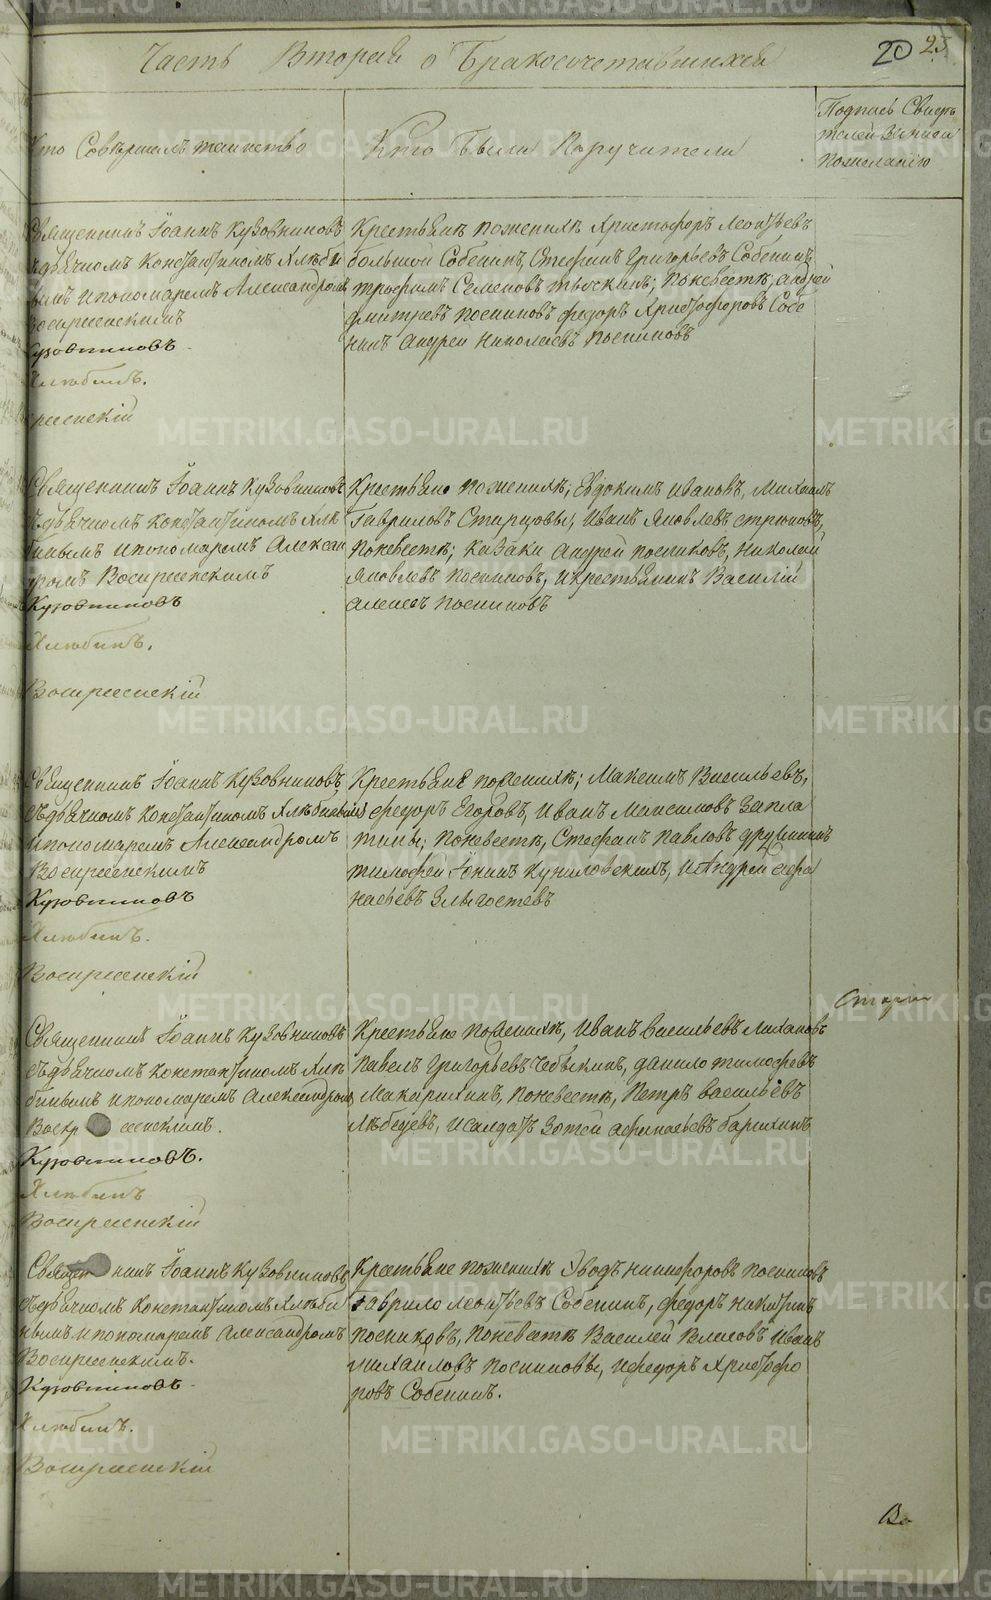 20 25
Часть Вторая о Бракосочетавшихся
Кто Совершалъ таинство
Кто Были Поручители
Подпись Свидѣ
телей Записи
Пожеланію
Священникъ Іоаннъ Кузовниковъ
съдьячкомъ Константиномъ Хлѣби
нымъ ипономаремъ Александромъ
Воскресенскимъ
Кузовниковъ.
Хлѣбинъ.
Воскресенскій
Крестьяне поженихѣ Христофоръ Леонтьевъ
большой Собенинъ, Стефанъ Григорьевъ Собенинъ
трофимъ Семеновъ; Поневестѣ, андрей
дмитревъ посниковъ федоръ Христофоровъ Собе
нинъ андрей Николаевъ Посниковъ
Священникъ Іоаннъ Кузовниковъ
съдьячкомъ Константиномъ Хлѣ
бинымъ ипономаремъ Алексан
дромъ Воскресенскимъ
Кузовниковъ
Хлѣбинъ.
Воскресенскій
Крестьяне поженихѣ, Евдокимъ Ивановъ, Михаилъ
Гавриловъ Старцовы, Иванъ Яковлевъ
поневестѣ; казаки андрей посниковъ, николай
Яковлевъ посниковъ, икрестьянинъ Василій
алексеевъ посниковъ
Священникъ Іоаннъ Кузовниковъ
съдьячкомъ Константиномъ Хлѣбинымъ
ипономаремъ Александромъ
Воскресенскимъ
Кузовниковъ
Хлѣбинъ.
Воскресенскій
Крестьяне поженихѣ; Максимъ Васильевъ,
федоръ Егоровъ, Иванъ Максимовъ Запла
тины; поневестѣ, Стефанъ Павловъ
тимофей, иАндрей афа
насьевъ Злыгостевъ
Священникъ Іоаннъ Кузовниковъ
съдьячкомъ Константиномъ Хлѣ
бинымъ ипономаремъ Александромъ
Воскресенскимъ.
Кузовниковъ.
Хлѣбинъ
Воскресенскій
Крестьяне поженихѣ, Иванъ васильевъ
Павелъ Григорьевъ, данило тимофеевъ
Макарихинъ, поневестѣ, Петръ васильевъ
Лѣбедевъ, исалдатъ Зотей афанасьевъ
Священникъ Іоаннъ Кузовниковъ
съдьячкомъ Константиномъ Хлѣби
нымъ ипономаремъ Александромъ
Воскресенскимъ.
Кузовниковъ
Хлѣбинъ.
Воскресенскій
Крестьяне поженихѣ никифоровъ посниковъ
гаврило леонтьевъ Собенинъ, федоръ никитинъ
посниковъ, поневестѣ Василей Иванъ
михайловъ посниковы, ифедоръ Христофо
ровъ Собенинъ.
METRIKI.GASO-URAL.RU